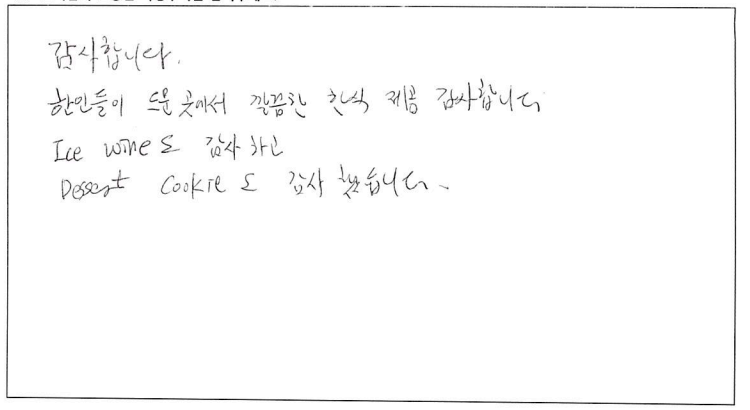 감사합니다.
한인들이 드문 곳에서 깔끔한 한식 제공 감사합니다
Ice wine도 감사하고
Dessert Cookie도 감사했습니다.